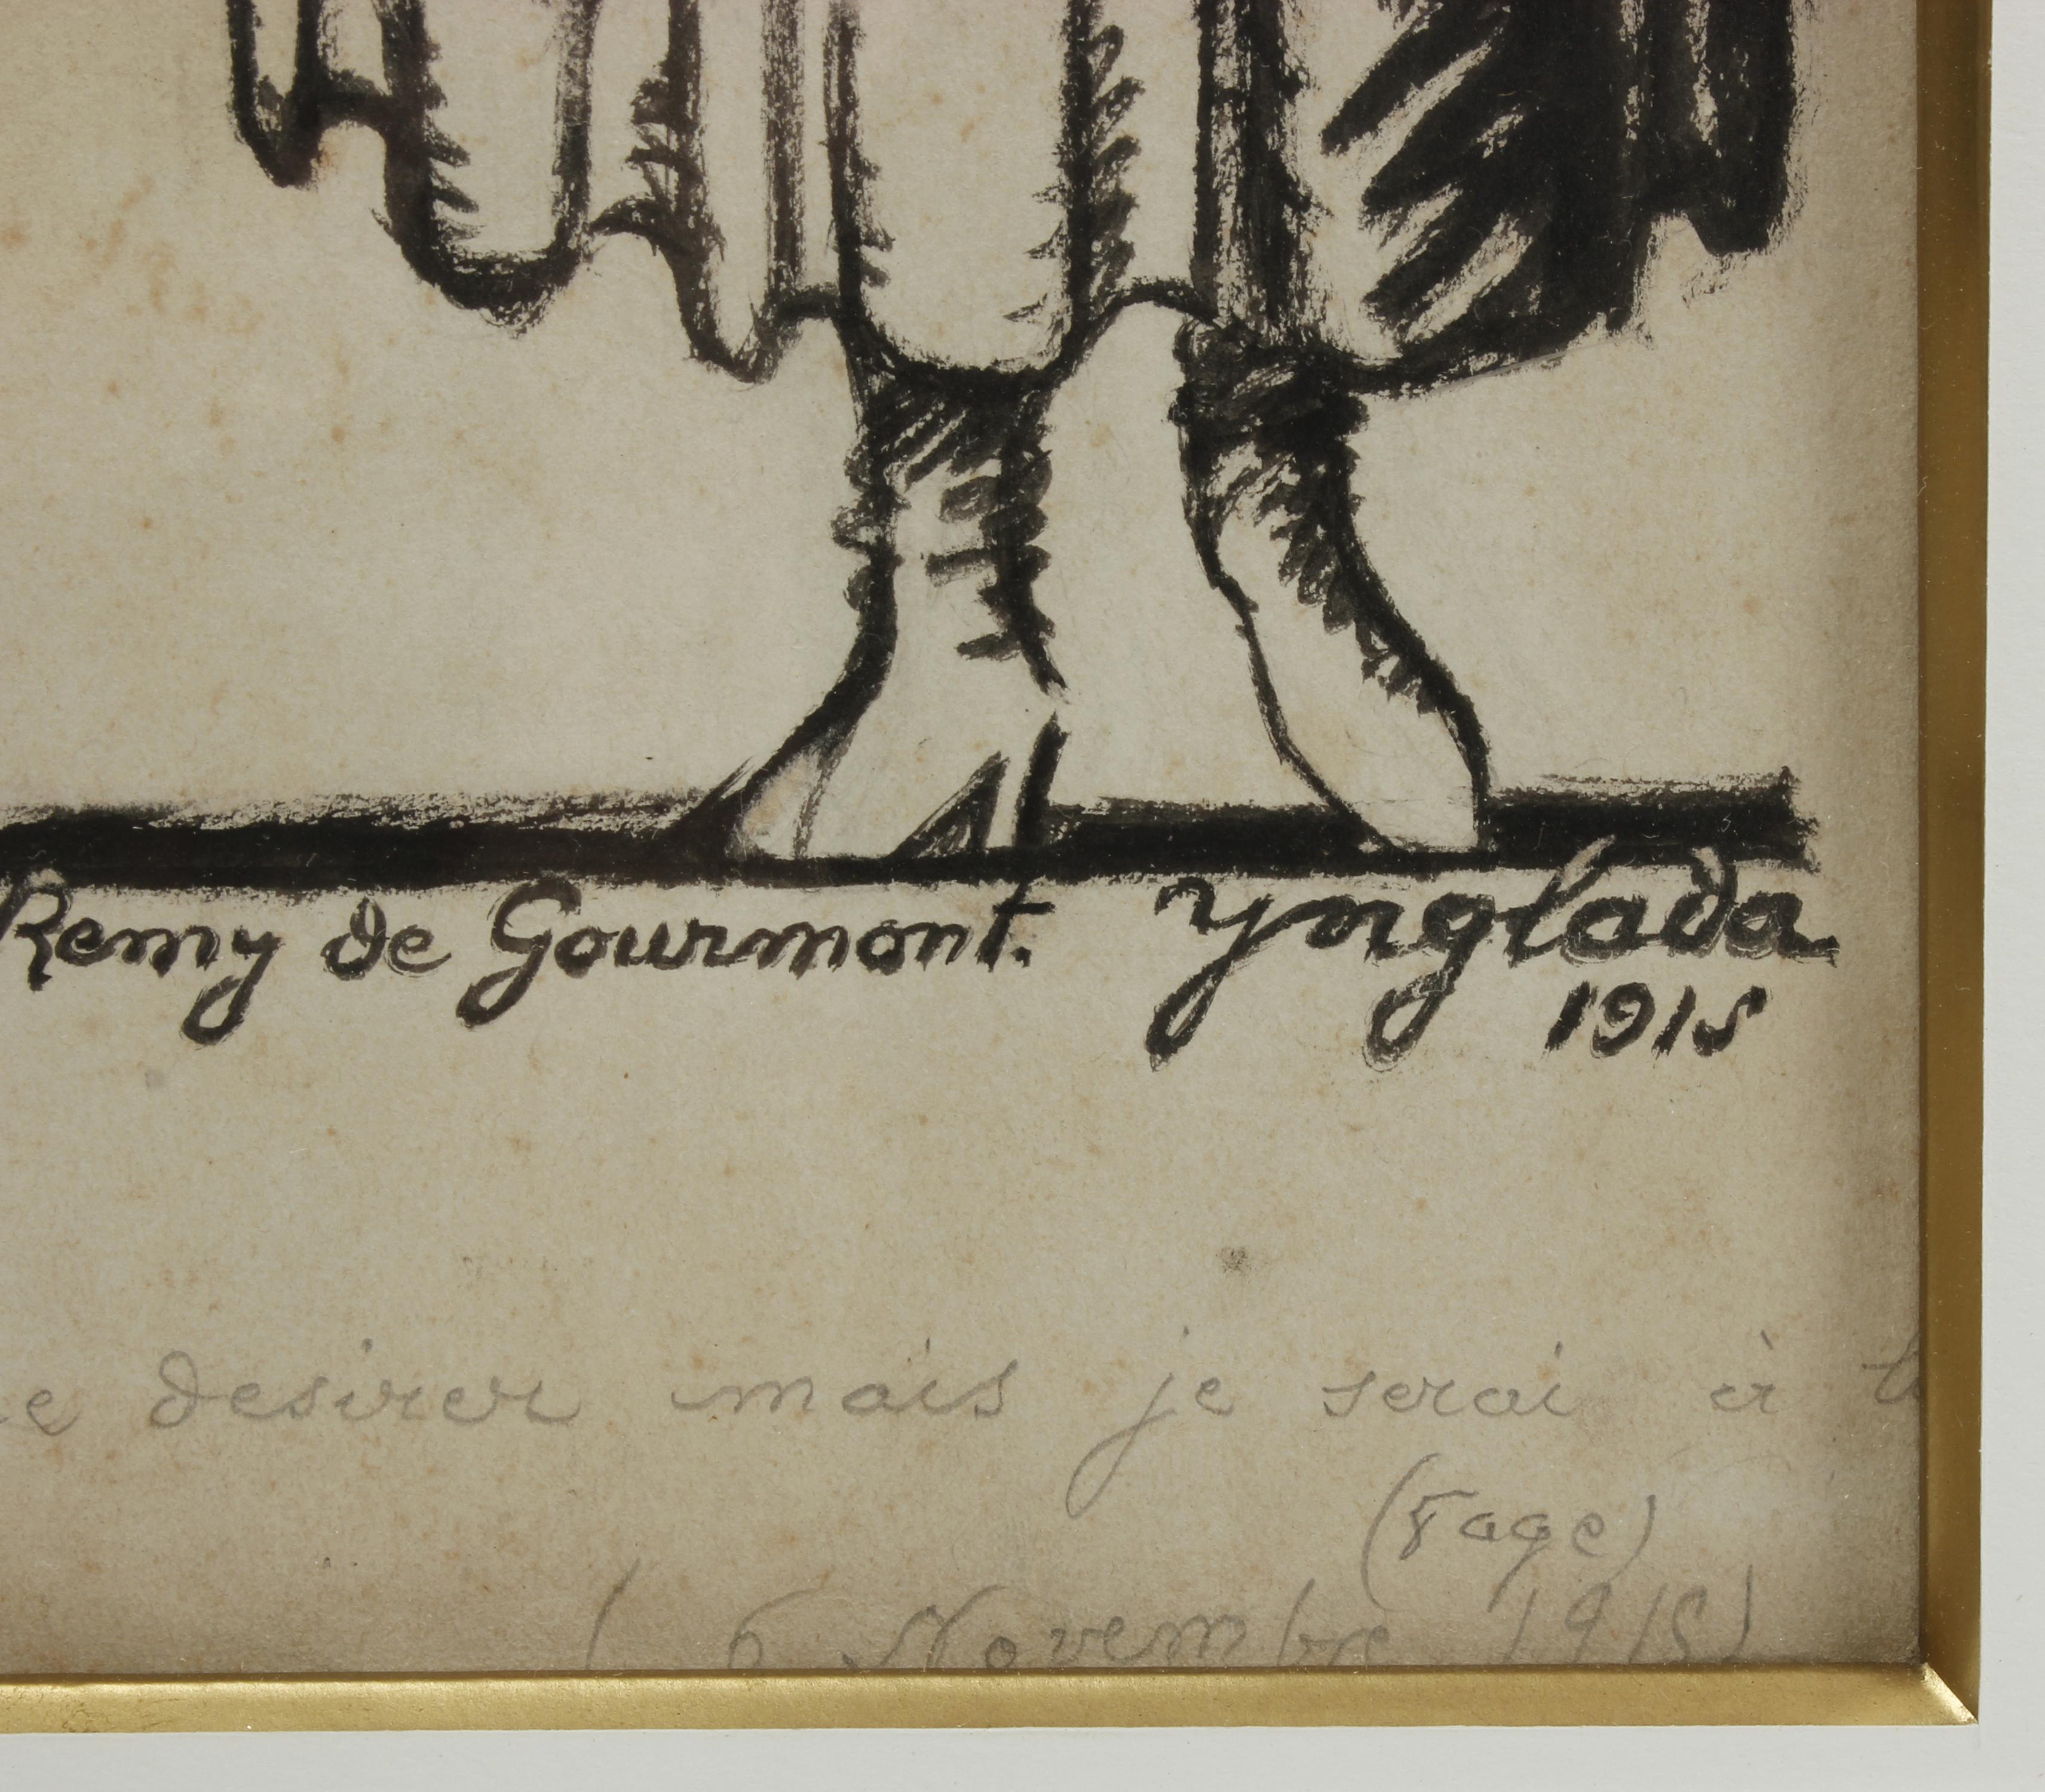 Remy de Gourmont. Ynglada
1915
desirer mais je serai à
(
( 6 Novembre 1915)